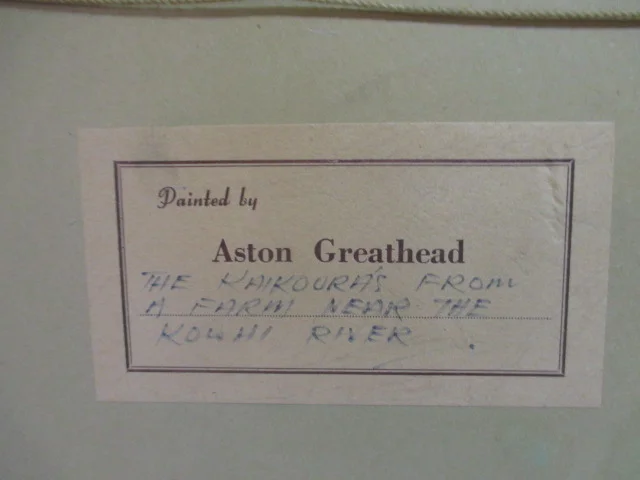 Painted by
Aston Greathead
THE KAIKOURA'S FROM
A FARM NEAR THE
KOWHI RIVER.